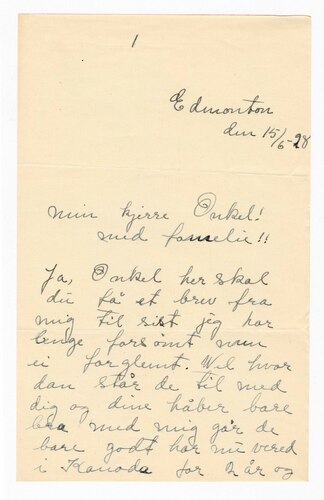 1
Edmonton
den 15/6-28
min kjerre Onkel!
med famelie!!
Ja, Onkel her skal
du få et brev fra
mig til sist jeg har
lenge forsømt men
ei forglemt. Vel hvor
dan står de til med
dig og dine håber bare
bra med mig går de
bare godt har nu vered
i Kanada for 2 år og